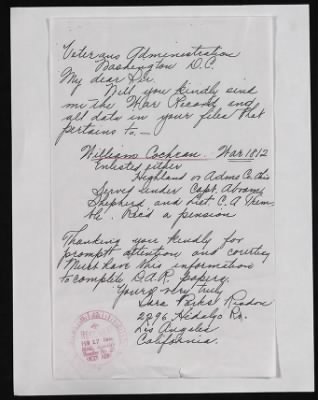 Veterans Administration
Washington D.C.
My dear Sir
Will you kindly send
me the War Record and
all data in your files that
pertains to. —
William Cochran. War 1812
Enlisted either
Highland or Adams Co. Ohio
Served under Capt. Abram
Shepherd and Lieut. C. A.
He Rec'd a pension
Thanking you kindly for
prompt attention and courtesy
Must have this information
to complete D.A.R. papers.
Yours very truly
Sara Parke
2296 Hidalgo Av.
Los Angeles
California.
FEB 27